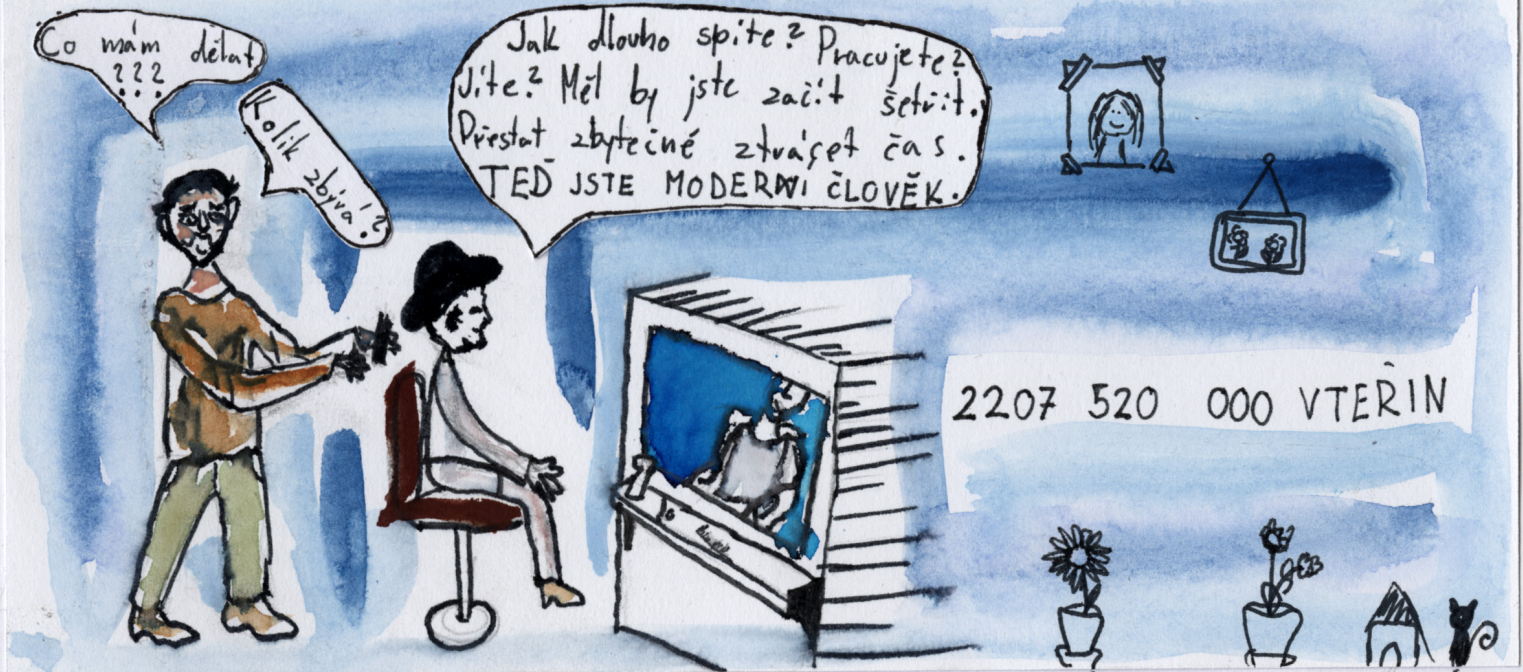 Co mám dělat
???
Kolik zbývá!?
Jak dlouho spíte? Pracujete?
Jíte? Měl by jste začít šetřit.
Přestat zbytečně ztrácet čas.
TEĎ JSTE MODERNÍ ČLOVĚK.
2207 520 000 VTEŘIN